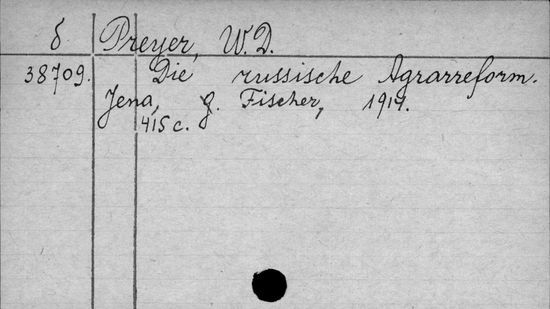 б Preyer, W.D.
38709. Die russische Agrarreform.
Jena, G. Fischer, 1914.
415 c.